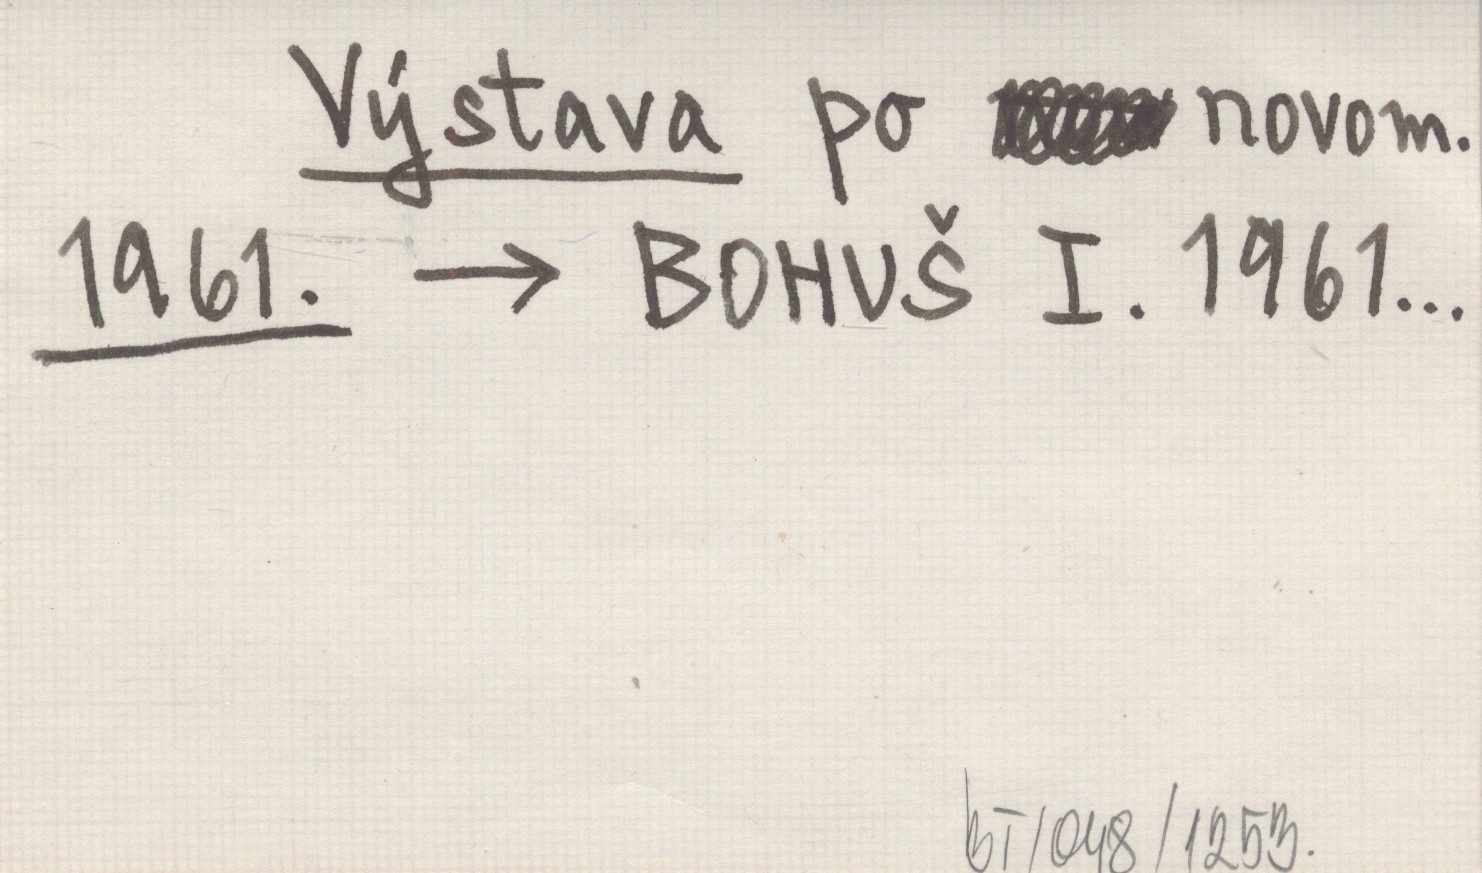 Výstava po novom.
1961. → BOHUŠ I. 1961...
BT/048/1253.